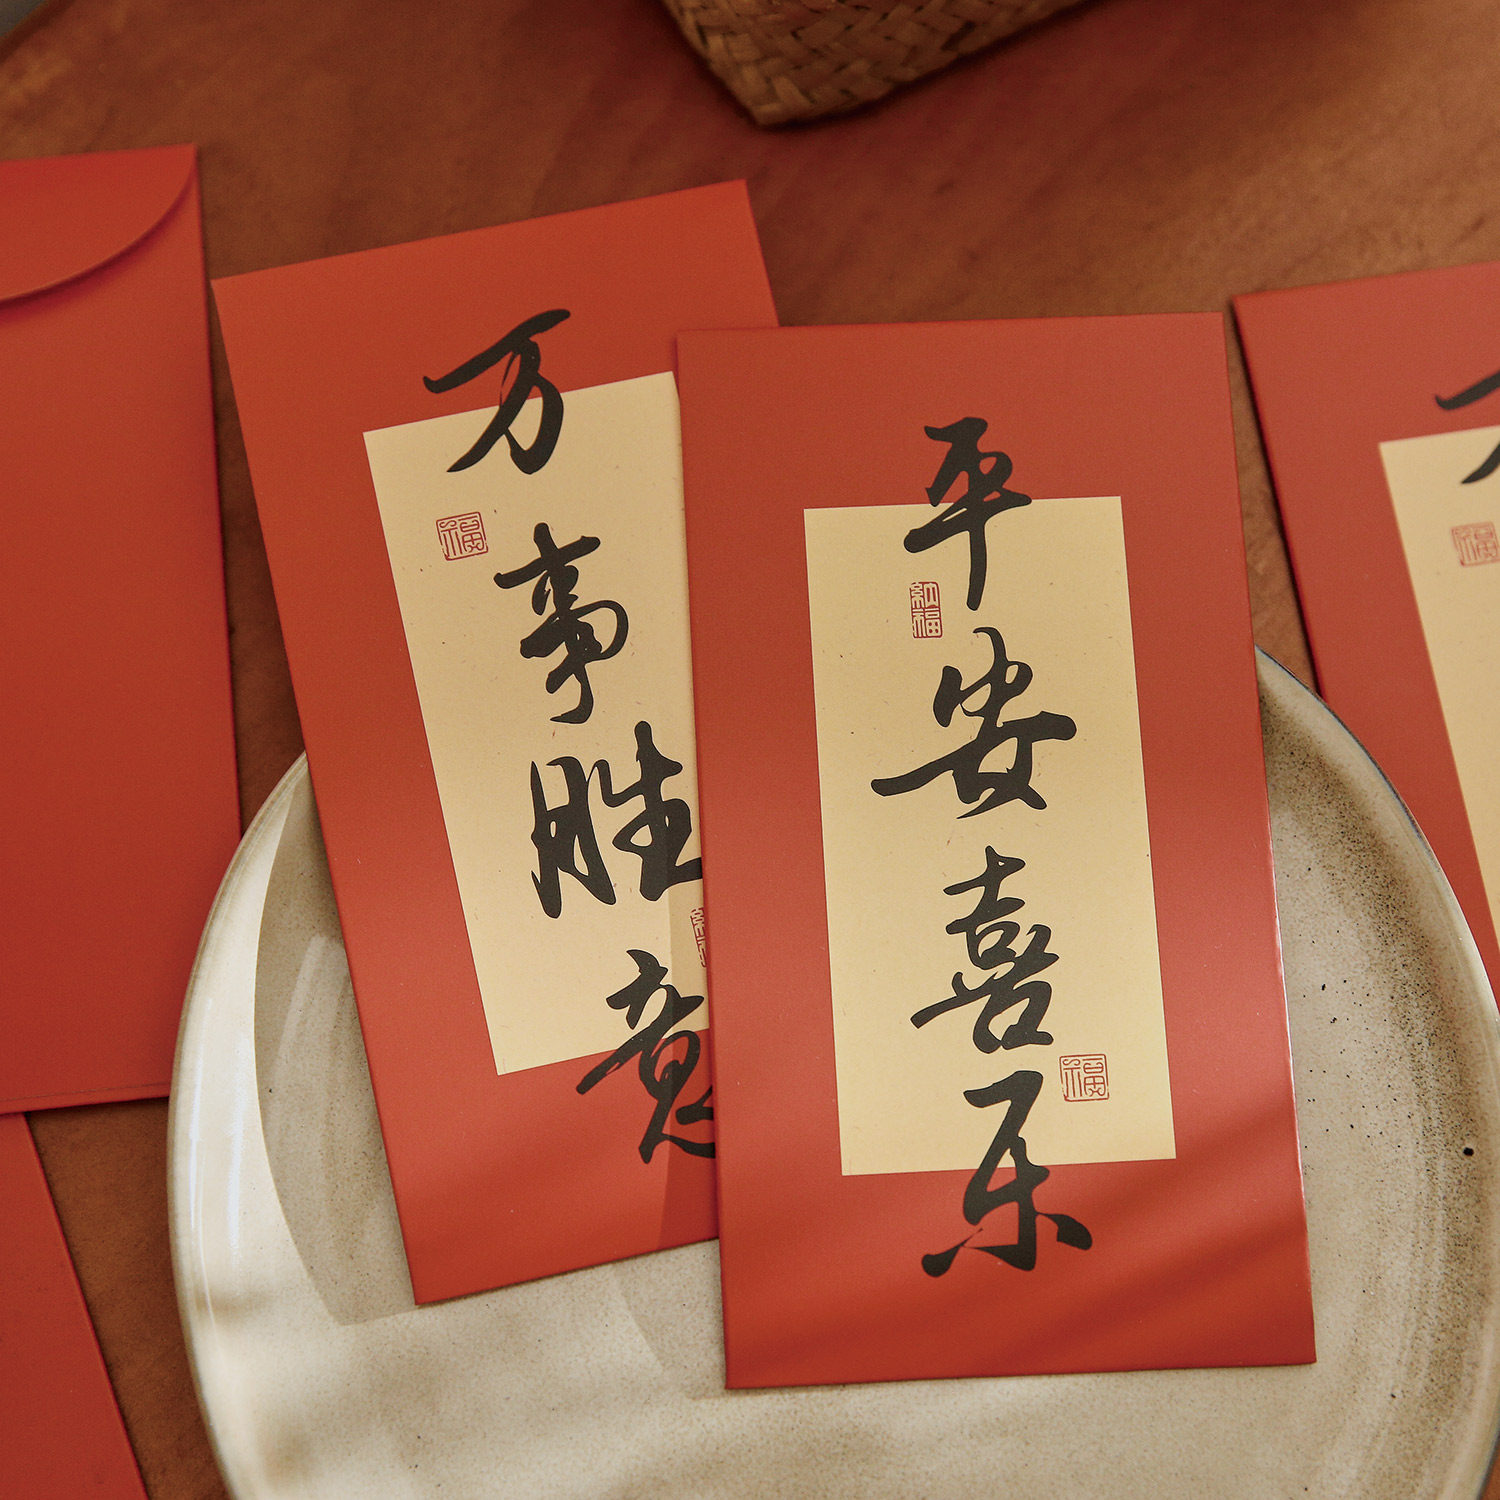 万事胜意
福
平安喜乐
纳福
福
万
福